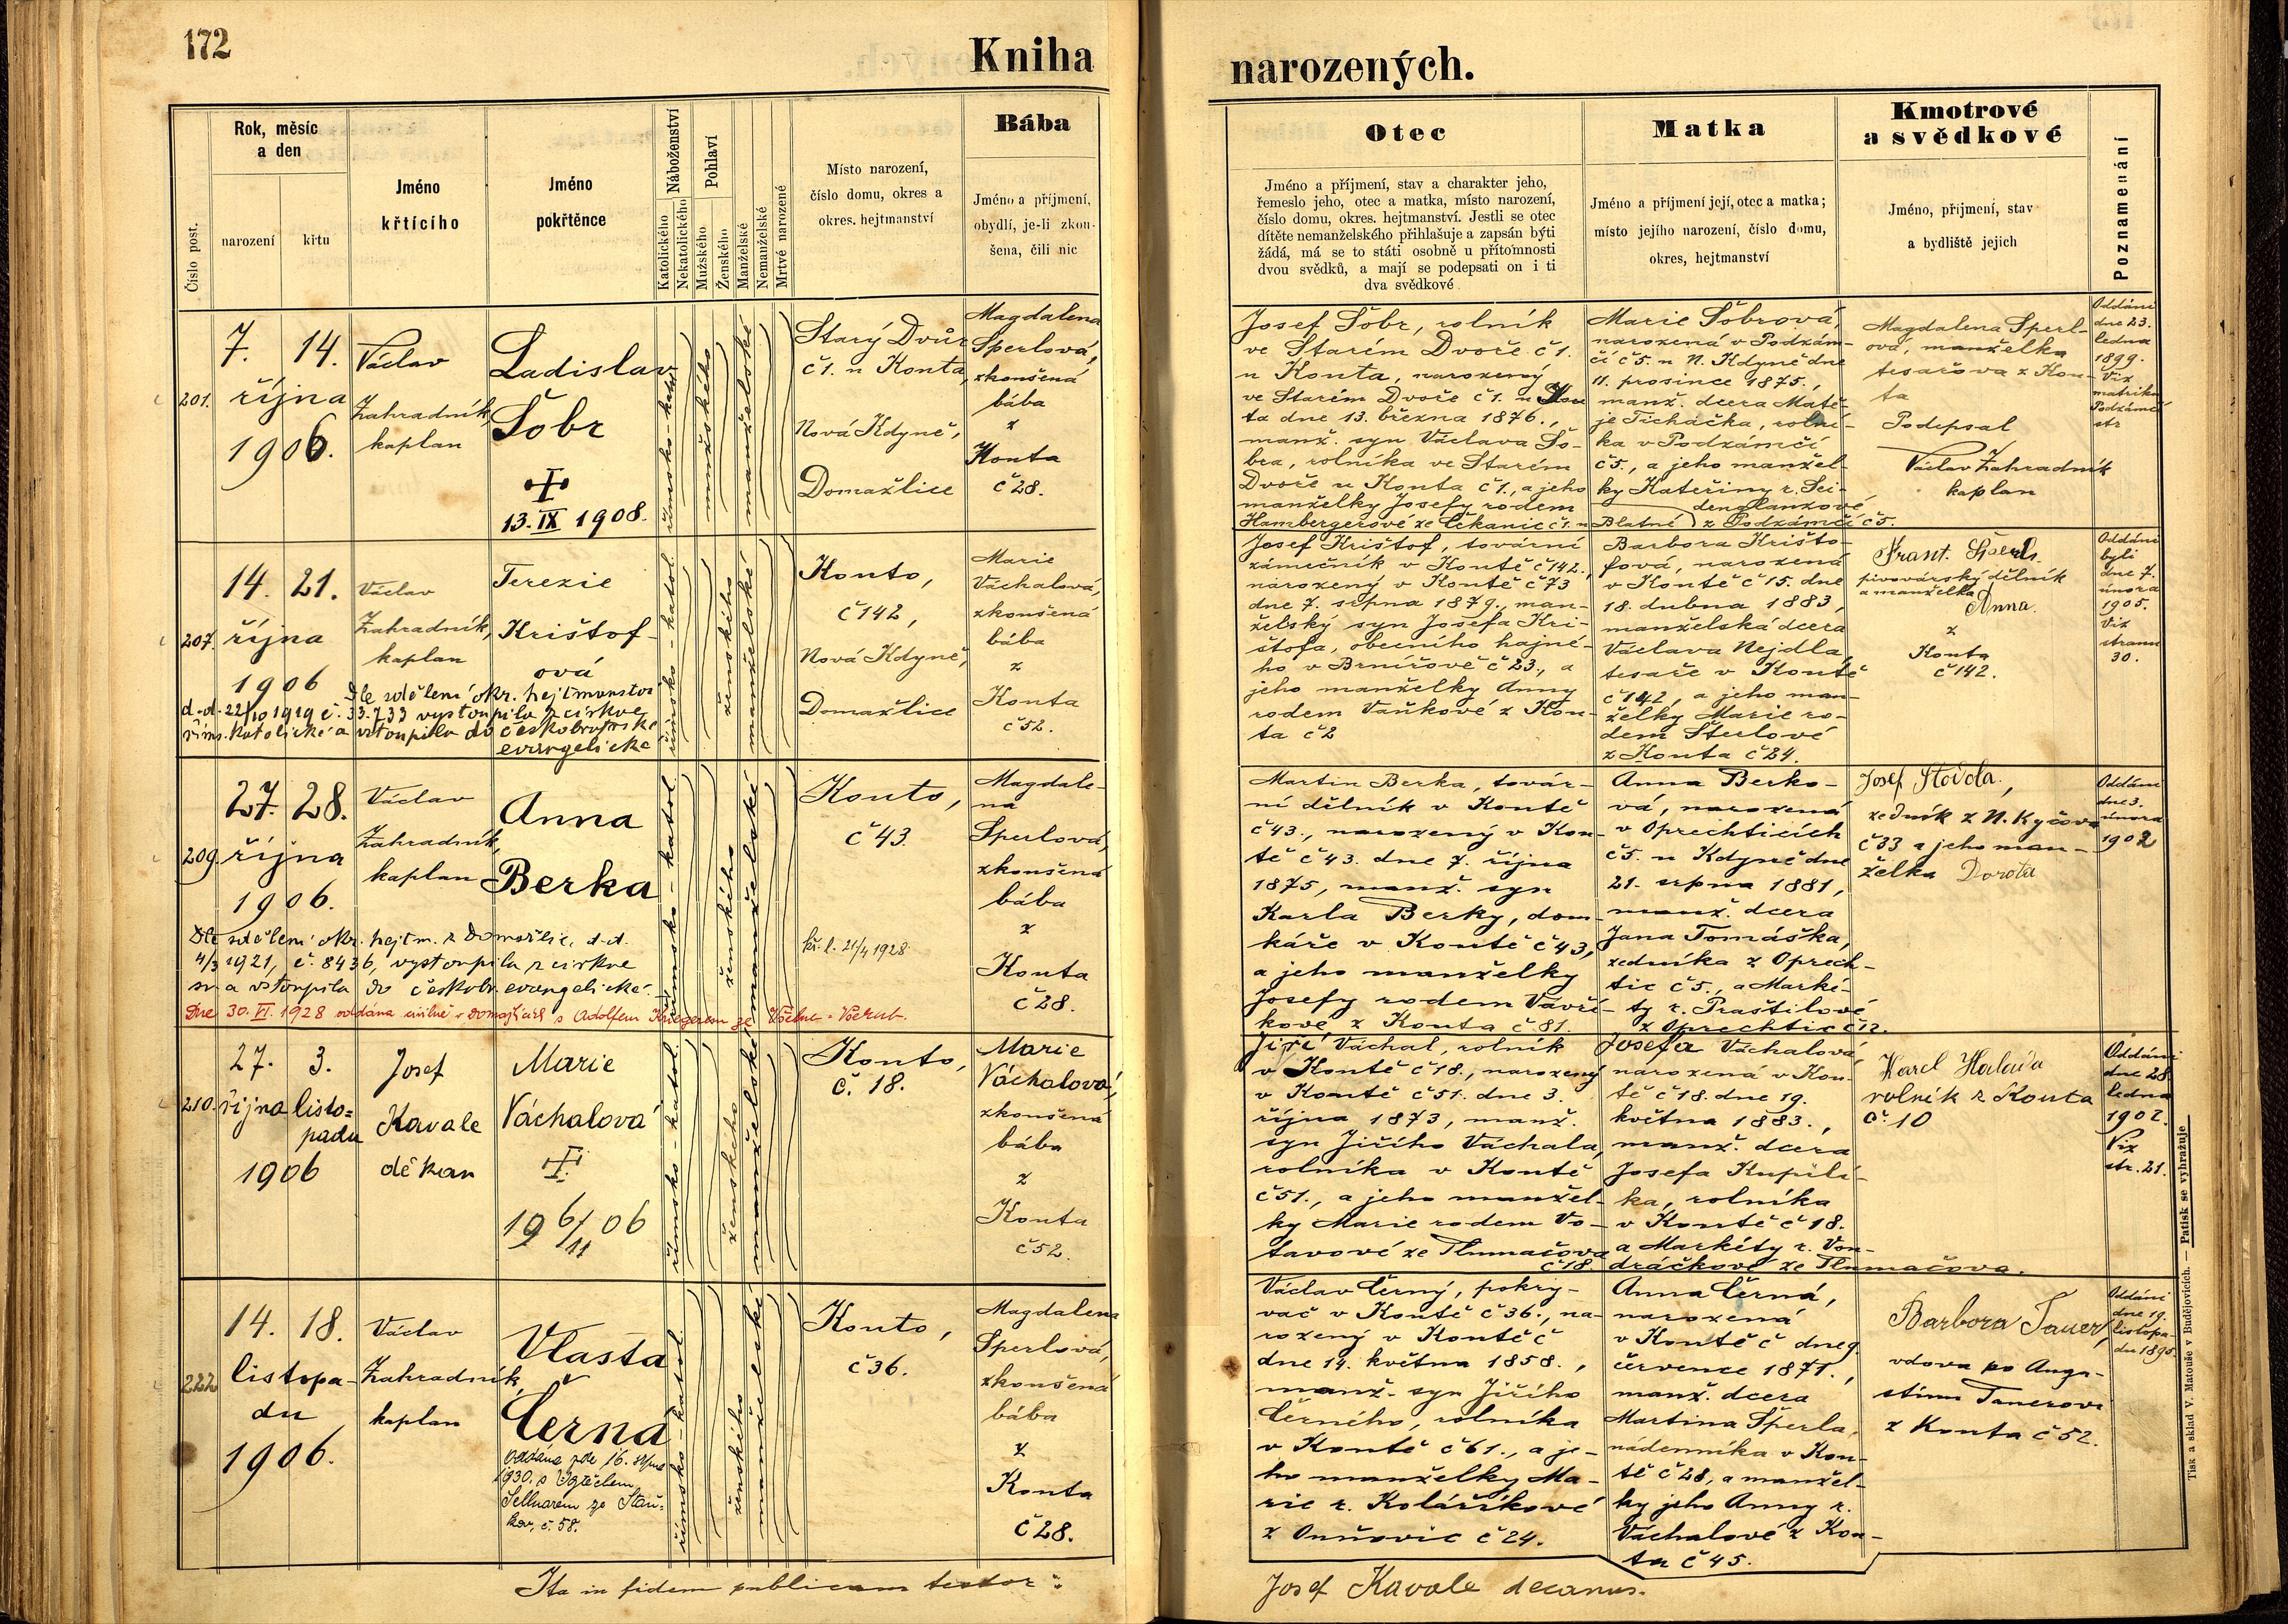 172
Kniha
narozených.
Číslo post.
Rok, měsíc
a den
narození
křtu
Jméno
křtícího
Jméno
pokřtěnce
Náboženství
Katolického
Nekatolického
Pohlaví
Mužského
Ženského
Manželské
Nemanželské
Mrtvě narozené
Místo narození,
číslo domu, okres a
okres. hejtmanství
Bába
Jméno a příjmení,
obydlí, je-li zkou-
šena, čili nic
Otec
Jméno a příjmení, stav a charakter jeho,
řemeslo jeho, otec a matka, místo narození,
číslo domu, okres. hejtmanství. Jestli se otec
dítěte nemanželského přihlašuje a zapsán býti
žádá, má se to státi osobně u přítomnosti
dvou svědků, a mají se podepsati on i ti
dva svědkové
Matka
Jméno a příjmení její, otec a matka;
místo jejího narození, číslo domu,
okres, hejtmanství
Kmotrové
a svědkové
Jméno, příjmení, stav
a bydliště jejich
Poznamenání
201.
7. 14.
října
1906.
Václav
Zahradník,
kaplan
Ladislav
Šobr
13. IX 1908.
římsko-kato
mužského
manželské
Starý Dvůr
č 1. u Kouta,
Nová Kdyně,
Domažlice
Magdalena
Sperlová,
zkoušená
bába
z
Kouta
č 28.
Josef Šobr, rolník
ve Starém Dvoře č 1.
u Kouta, narozený
ve Starém Dvoře č 1. u Kou
ta dne 13. března 1876.,
manž. syn Václava Šo-
bra, rolníka ve Starém
Dvoře u Kouta č 1., a jeho
manželky Josefy rodem
Hambergerové ze Čekanic č 1. u Blatné
Marie Šobrová,
narozená v Podzám-
čí č 5. u N. Kdyně dne
11. prosince 1875.,
manž. dcera Matě-
je Ticháčka, rolní-
ka v Podzámčí
č 5., a jeho manžel-
ky Kateřiny r. Sei-
denglanzové
z Podzámčí č 5.
Magdalena Sperl-
ová, manželka
tesařova z Kou-
ta
Podepsal
Václav Zahradník
kaplan
Oddáni
dne 23.
ledna
1899.
Viz
matriku
Podzámčí
str
207.
14. 21.
října
1906
Václav
Zahradník,
kaplan
Terezie
Krištof-
ová
Dle sdělení okr. hejtmanství
d. d. 22/10 1919 č. 33.733 vystoupila z církve
řims. katolické a vstoupila do českobratrské
evangelické
římsko-katol.
ženského
manželské
Kouto,
č 142,
Nová Kdyně,
Domažlice
Marie
Váchalová,
zkoušená
bába
z
Kouta
č 52.
Josef Krištof, tovární
zámečník v Koutě č 142,
narozený v Koutě č 73
dne 7. srpna 1879., man-
želský syn Josefa Kri-
štofa, obecního hajné-
ho v Brnířově č 23., a
jeho manželky Anny
rodem Vaňkové z Kou-
ta č 2
Barbora Krišto-
fová, narozená
v Koutě č 15. dne
18. dubna 1883,
manželská dcera
Václava Nejdla,
tesaře v Koutě
č 142, a jeho man-
želky Marie ro-
dem Šterlové
z Kouta č 24.
Frant. Sperl
pivovárský dělník
a manželka
Anna
z
Kouta
č 142.
Oddáni
byli
dne 7.
února
1905.
Viz
stranu
30.
209.
27. 28.
října
1906.
Václav
Zahradník,
kaplan
Anna
Berka
Dle sdělení okr. hejtm. z Domažlic, d. d.
4/3 1921, č. 8436, vystoupila z církve
a vstoupila do českobr. evangelické.
Dne 30. VI. 1928 oddána civilně v Domažlicích s Adolfem Kriegerem ze
římsko-katol.
ženského
manželské
Kouto,
č 43.
kř. l. 21/4 1928
Magdale-
na
Sperlová,
zkoušená
bába
z
Kouta
č 28.
Martin Berka, továr-
ní dělník v Koutě
č 43., narozený v Kou-
tě č 43. dne 7. října
1875, manž. syn
Karla Berky, dom-
káře v Koutě č 43,
a jeho manželky
Josefy rodem Vavří-
kové z Kouta č 81.
Anna Berko-
vá, narozená
v Oprechticích
č 5. u Kdyně dne
21. srpna 1881,
manž. dcera
Jana Tomáška,
zedníka z Oprech-
tic č 5., a Marké-
ty r. Praštilové
z Oprechtic č 12.
Josef
zedník z N. Kyčova
č 33 a jeho man-
želka Dorota
Oddáni
dne 3.
února
1902
210.
27. 3.
října listo=
padu
1906
Josef
Kavale
děkan
Marie
Váchalová
19 6/11 06
římsko-katol.
ženského
manželské
Kouto,
č. 18.
Marie
Váchalová,
zkoušená
bába
z
Kouta
č 52.
Jiří Váchal, rolník
v Koutě č 18., narozený
v Koutě č 51. dne 3.
října 1873, manž.
syn Jiřího Váchala,
rolníka v Koutě
č 51., a jeho manžel-
ky Marie rodem Vo-
tavové ze Tlumačova
č 18.
Josefa Váchalová,
narozená v Kou-
tě č 18. dne 19.
května 1883.,
manž. dcera
Josefa Kupilí-
ka, rolníka
v Koutě č 18.
a Markéty r. Von-
dráčkové ze Tlumačova.
Karel Halada
rolník z Kouta
č. 10
Oddáni
dne 28.
ledna
1902.
Viz
str. 21.
222
14. 18.
listopa-
du
1906.
Václav
Zahradník,
kaplan
Vlasta
Černá
oddána dne 16. srpna
1930. s Vojtěchem
Sellnarem ze Staň-
kov, č. 58.
římsko-katol.
ženského
manželské
Kouto,
č 36.
Magdalena
Sperlová,
zkoušená
bába
z
Kouta
č 28.
Václav Černý, pokrý-
vač v Koutě č 36., na-
rozený v Koutě č
dne 14. května 1858.,
manž. syn Jiřího
Černého, rolníka
v Koutě č 61., a je-
ho manželky Ma-
rie r. Koláříkové
z Onňovic č 24.
Anna Černá,
narozená
v Koutě č dne 9.
července 1871.,
manž. dcera
Martina Šperla,
nádenníka v Kou-
tě č 28, a manžel-
ky jeho Anny r.
Váchalové z Kou-
ta č 45.
Barbora Tauer,
vdova po Augu-
stinu Tauerovi
z Kouta č 52.
Oddáni
dne 19.
listopa-
du 1895.
Ita in fidem publicam testor:
Josef Kavale decanus.
Tisk a sklad V. Matouše v Budějovicích. — Patisk se vyhražuje